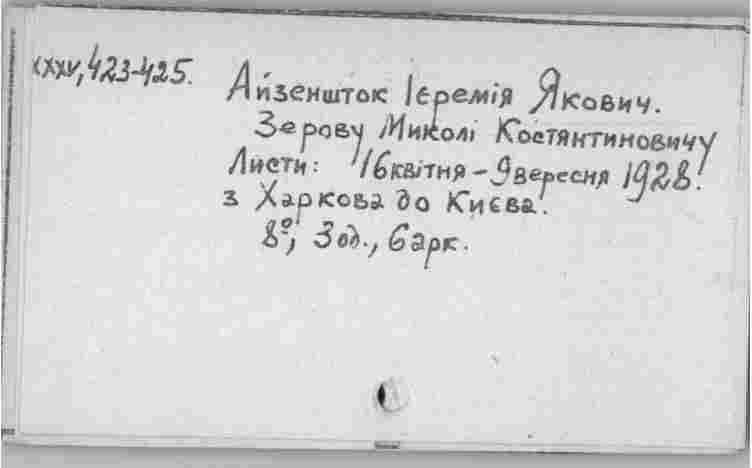 XXXV, 423-425.
Айзеншток Ієремія Якович.
Зерову Миколі Костянтиновичу
Листи: 16 квітня - 9 вересня 1928.
з Харкова до Києва.
8º, 3 од., 6 арк.